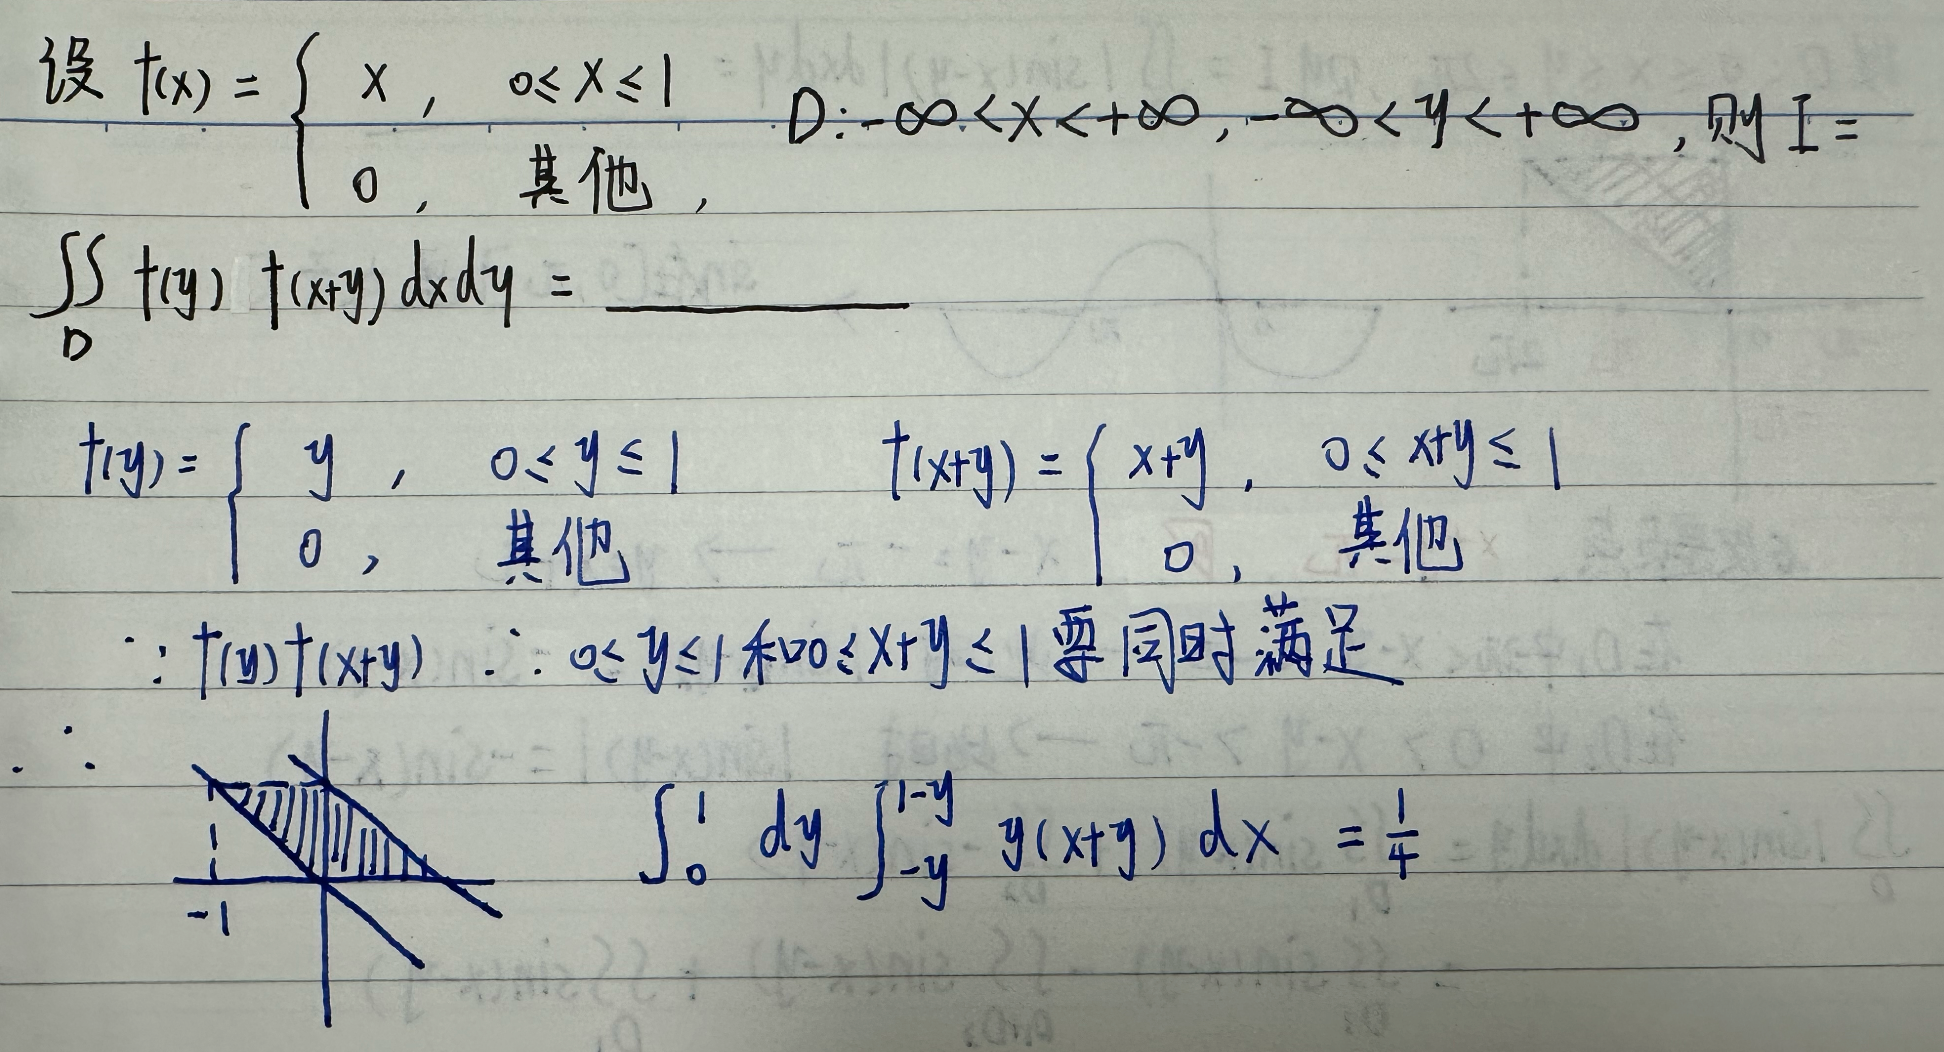 设 f(x) = { x , 0≤x≤1
0 , 其他 ,
D: -∞<x<+∞, -∞<y<+∞, 则 I =
∬_D f(y) f(x+y) dxdy = ________
f(y) = { y , 0≤y≤1
0 , 其他
f(x+y) = { x+y , 0≤x+y≤1
0 , 其他
∵ f(y)f(x+y) ∴ 0≤y≤1和0≤x+y≤1要同时满足
∴
-1
∫₀¹ dy ∫_{-y}^{1-y} y(x+y) dx = 1/4